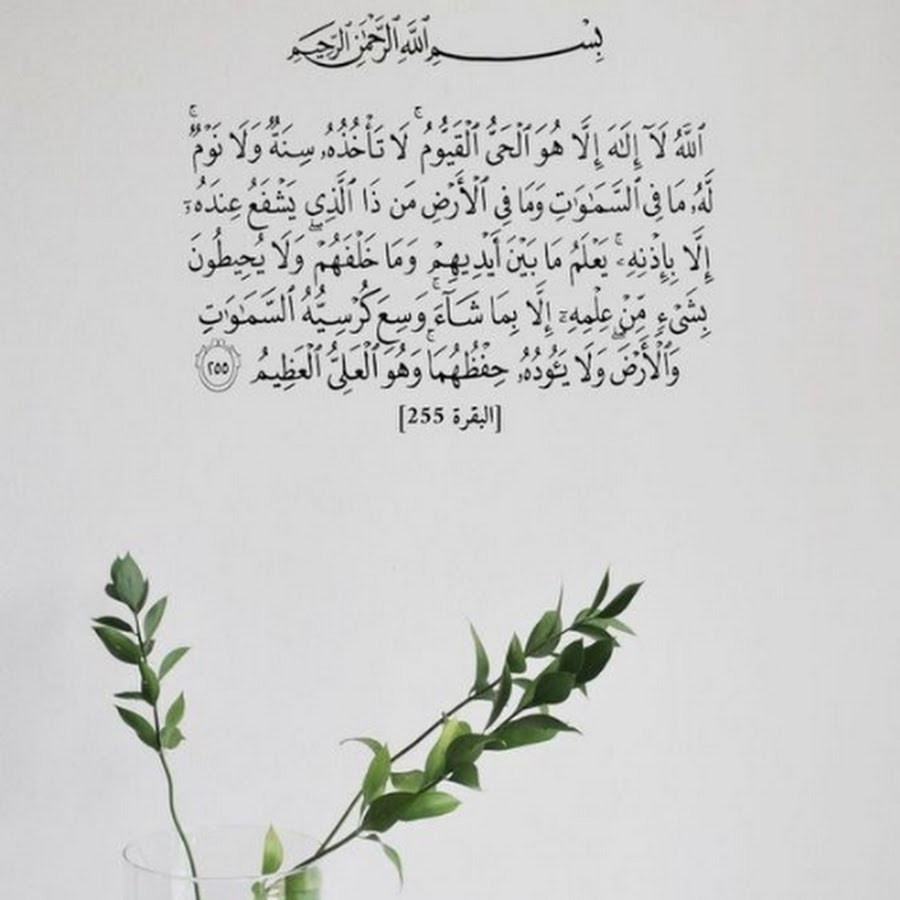 بِسْمِ ٱللَّهِ ٱلرَّحْمَٰنِ ٱلرَّحِيمِ
ٱللَّهُ لَآ إِلَٰهَ إِلَّا هُوَ ٱلْحَىُّ ٱلْقَيُّومُ ۚ لَا تَأْخُذُهُۥ سِنَةٌ وَلَا نَوْمٌ ۚ
لَّهُۥ مَا فِى ٱلسَّمَٰوَٰتِ وَمَا فِى ٱلْأَرْضِ ۗ مَن ذَا ٱلَّذِى يَشْفَعُ عِندَهُۥٓ
إِلَّا بِإِذْنِهِۦ ۚ يَعْلَمُ مَا بَيْنَ أَيْدِيهِمْ وَمَا خَلْفَهُمْ ۖ وَلَا يُحِيطُونَ
بِشَىْءٍ مِّنْ عِلْمِهِۦٓ إِلَّا بِمَا شَآءَ ۚ وَسِعَ كُرْسِيُّهُ ٱلسَّمَٰوَٰتِ
وَٱلْأَرْضَ ۖ وَلَا يَـُٔودُهُۥ حِفْظُهُمَا ۚ وَهُوَ ٱلْعَلِىُّ ٱلْعَظِيمُ ٢٥٥
[البقرة 255]